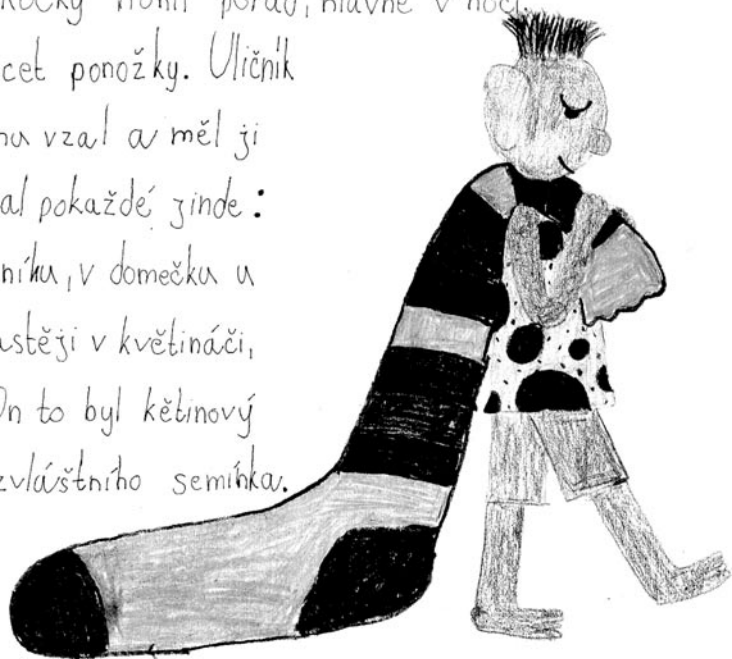 kočky honil pořád, hlavně v noci.
cet ponožky. Uličník
nu vzal a měl ji
al pokaždé jinde:
níku, v domečku u
astěji v květináči,
On to byl kětinový
zvláštního semínka.